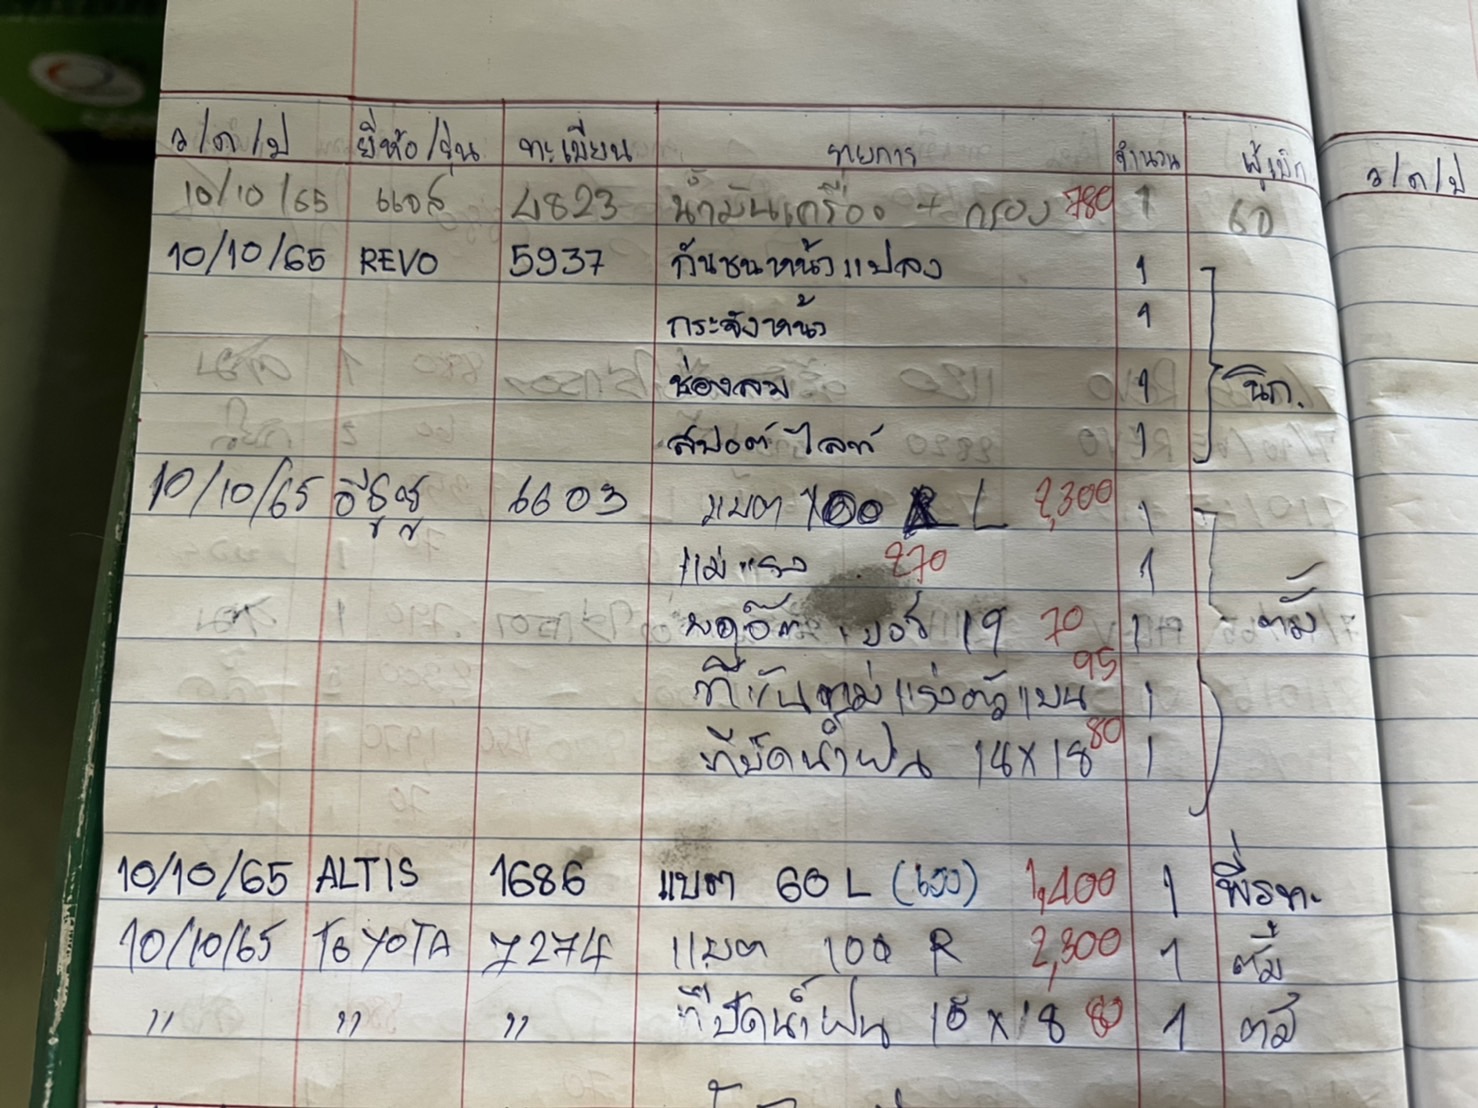 ว/ด/ป ยี่ห้อ/รุ่น ทะเบียน รายการ จำนวน ผู้เบิก ว/ด/ป
10/10/65 4823 น้ำมันเครื่อง + กรอง 780 1
10/10/65 REVO 5937 กันชนหน้าแปลง 1
กระจังหน้า 1
ช่องลม 1
สปอต์ไลท์ 1
10/10/65 อีซูซุ 6603 แบต 100 L 2,300 1
แม่แรง 270 1
เบอร์ 19 70 1
ตัวแบน 95 1
ที่ปัดน้ำฝน 14x18 80 1
10/10/65 ALTIS 1686 แบต 60 L 1,400 1
10/10/65 ToYOTA 7274 แบต 100 R 2,300 1 ตั้ม
" " " ที่ปัดน้ำฝน 18 80 1